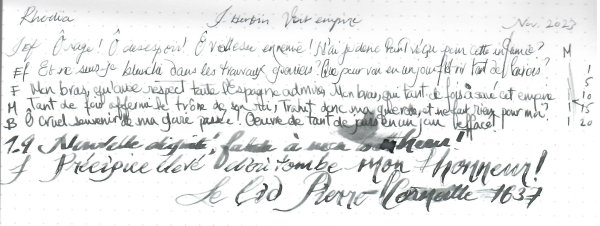 Rhodia J. Herbin Vert empire Nov. 2023
Ô rage! Ô desespoir! Ô vieillesse ennemie! N'ai-je donc tant vécu pour cette infamie? M
EF Et ne suis-je blanchi dans les travaux guerriers? Que pour voir en un jour flétrir tant de lauriers? 1 5
F Mon bras, qu'avec respect toute l'Espagne admire, Mon bras, qui tant de fois a sauvé cet empire 1 10
M Tant de fois affermi le trône de son roi, Trahit donc ma querelle, et ne fait rien pour moi? 1 15
B Ô cruel souvenir de ma gloire passée! Oeuvre de tant de jours en un jour effacée! 1 20
1.9 Nouvelle dignité, fatale à mon bonheur!
Précipice élevé d'où tombe mon honneur!
Le Cid Pierre Corneille 1637